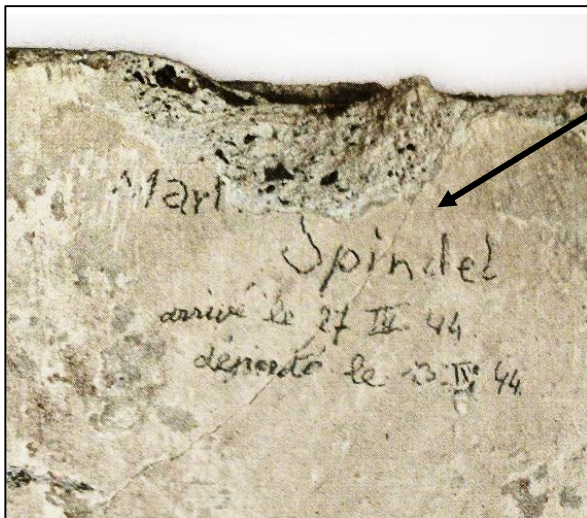 Mart
Spindel
arrivé le 27 III 44
déporté le 13 IV 44